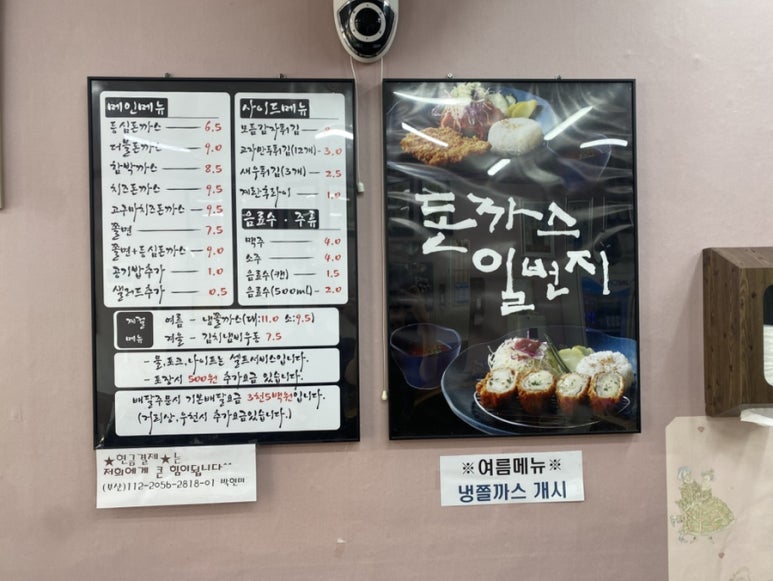 메인메뉴
등심돈까스 6.5
더블돈까스 9.0
함박까스 8.5
치즈돈까스 9.5
고구마치즈돈까스 9.5
쫄면 7.5
쫄면+등심돈까스 9.0
공기밥추가 1.0
샐러드추가 0.5
사이드메뉴
모듬감자튀김
군만두튀김(12개) 3.0
새우튀김(3개) 2.5
계란후라이 1.0
음료수 · 주류
맥주 4.0
소주 4.0
음료수(캔) 1.5
음료수(500ml) 2.0
계절
메뉴
여름 - 냉쫄까스(대:11.0 소:9.5)
겨울 - 김치냄비우동 7.5
- 물,포크,나이프는 셀프서비스입니다.
- 포장시 500원 추가요금 있습니다.
배달주문시 기본배달요금 3천5백원입니다.
(거리상,우천시 추가요금있습니다.)
★현금결제★는
저희에게 큰 힘이됩니다^^
(부산)112-2056-2818-01 박현미
돈까스
일번지
※여름메뉴※
냉쫄까스 개시